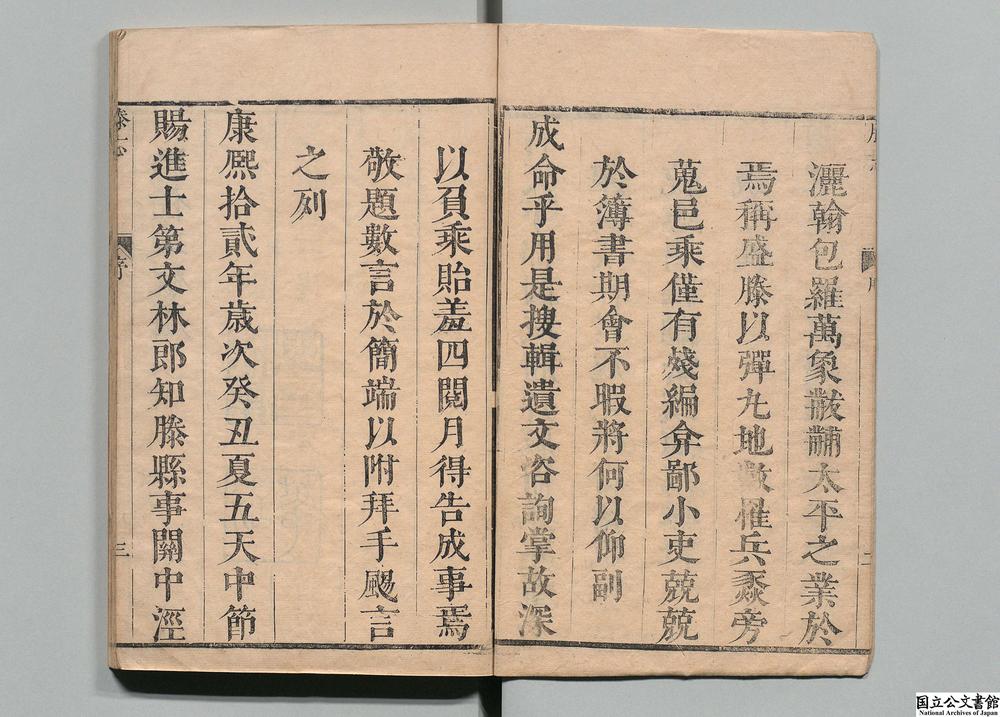 灑翰包羅萬象黻黼太平之業於
焉稱盛滕以彈丸地數罹兵燹旁
蒐邑乘僅有殘編弁鄙小吏兢兢
於簿書期會不暇將何以仰副
成命乎用是搜輯遺文咨詢掌故深
以負乘貽羞四閱月得告成事焉
敬題數言於簡端以附拜手颺言
之列
康熙拾貳年歲次癸丑夏五天中節
賜進士第文林郎知滕縣事關中涇
滕志
序
三
国立公文書館
National Archives of Japan